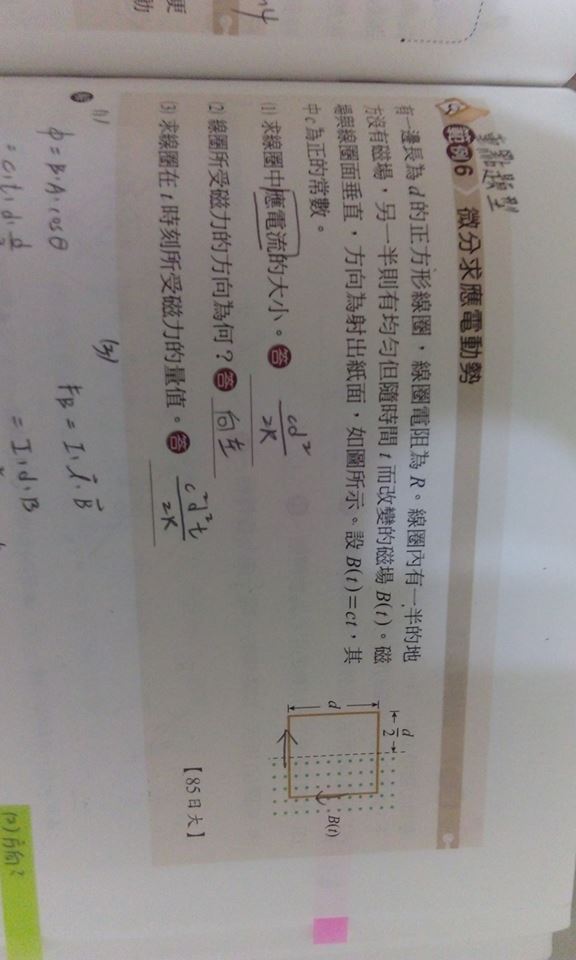 重點題型
範例6 微分求應電動勢
有一邊長為 d 的正方形線圈,線圈電阻為 R。線圈內有一半的地
方沒有磁場,另一半則有均勻但隨時間 t 而改變的磁場 B(t)。磁
場與線圈面垂直,方向為射出紙面,如圖所示。設 B(t)=ct,其
中 c 為正的常數。
(1) 求線圈中應電流的大小。答 cd²/2R
(2) 線圈所受磁力的方向為何?答 向左
(3) 求線圈在 t 時刻所受磁力的量值。答 c²d³t/2R
【85日大】
d/2
d
B(t)
解 (1)
ϕ = B·A·cosθ
= c·t·d·d/2
(3)
F_B = I·l·B
= I·d·B
(2)方向?